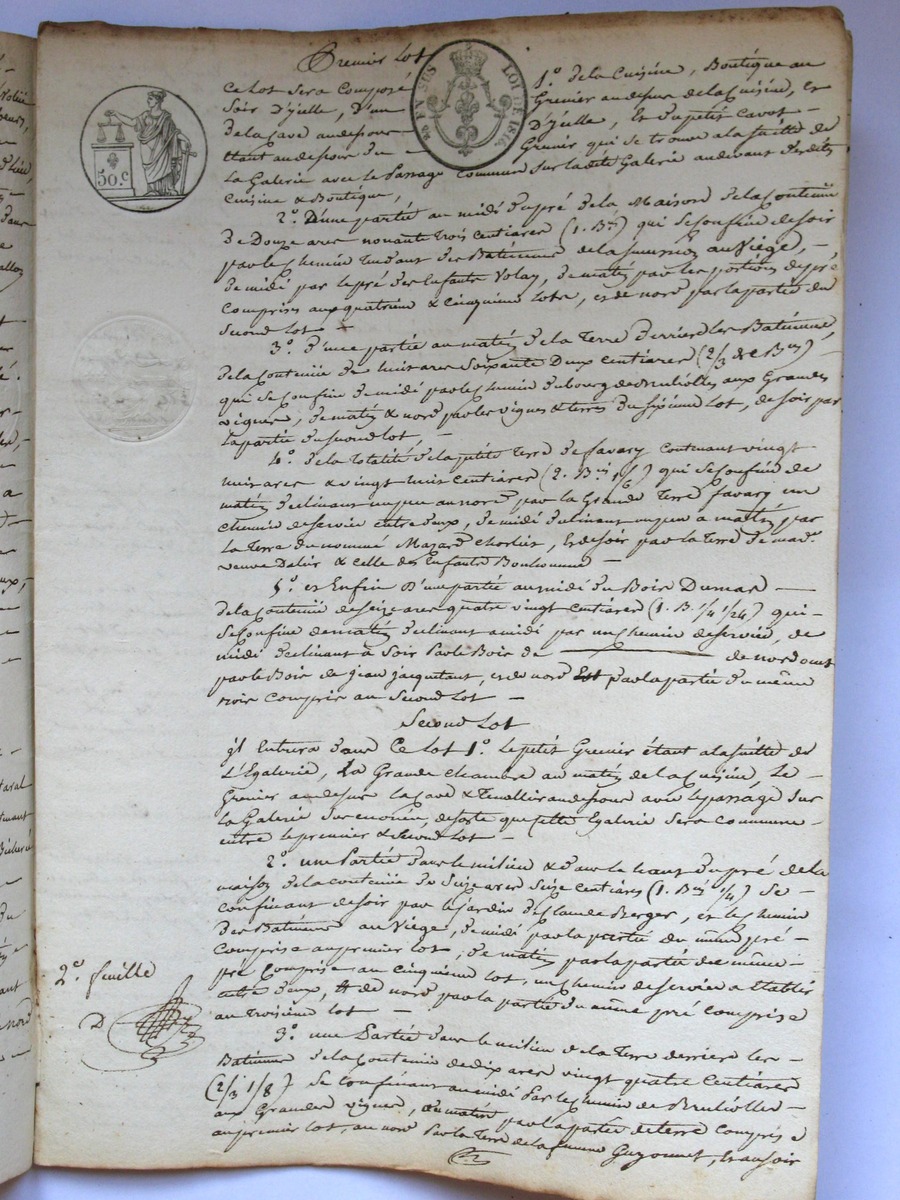 Premier Lot
Ce Lot Sera Composé 1.° de la Cuisine, Boutique au
Soir d'ycelle, d'un Grenier au dessus de la Cuisine, et
de la Cave au dessous d'ycelle, et du petit Cavot
étant au dessous du Grenier qui se trouve a la suitte de
La Galerie avec le Passage commun sur la dite Galerie au devant desdits
Cuisine & Boutique,
2.° D'une partie au midi du pré de la Maison de la Contenue
de Douze ares nonante trois Centiares (1. B.ée) qui se confine de soir
par le chemin tendant des Batimens de la succession au Viége,
de midi par le pré des Enfants Volay, de matin par les portions de pré
comprises aux quatrieme & Cinquieme Lots, et de nord par la partie du
Second Lot
3.° d'une partie au matin de la Terre derrier les Batimens,
de la contenue de huit ares Soixante Deux centiares (2/3 de B.ée)
qui se Confine de midi par le Chemin du bourg de Brullioles aux Grandes
vignes, de matin & nord par les vignes & terres du sixieme Lot, de soir par
la partie du second Lot,
4.° de la Totalité de la petite Terre de favary Contenant vingt
huit ares & vingt huit centiares (2. B.ées 1/6) qui se Confine de
matin declinant un peu au nord par la Grande Terre favary un
chemin de service entre deux, de midi declinant un peu a matin, par
la Terre du nommé Mazard, et de soir par la Terre de mad.e
veuve Dalin & celle des Enfants Bonhomme
5.° et Enfin D'une partie au midi du Bois Dumas
de la contenue de seize ares quatre vingt centiares (1. B. 1/4 1/24) qui
se Confine de matin declinant a midi par un chemin de service, de
midi declinant à Soir Par le Bois de de nord ouest
par le Bois de Jean Jacquitant, et de nord Est par la partie du même
Bois compris au Second Lot
Second Lot
Il Entrera dans Ce Lot 1.° Le petit Grenier étant a la suitte de
L'Egalerie, La Grande Chambre au matin de la Cuisine, Le
Grenier au dessus la Cave & Tenallier au dessous avec le passage sur
la Galerie sus enoncée, de sorte que cette Egalerie Sera commune
entre le premier & Second Lot
2.° une Partie dans le milieu & dans le haut du pré de la
maison de la contenue de Seize ares Seize centiares (1. B.ée 1/4) Se
confinant de soir par le jardin de Claude Berger, et le chemin
des Batimens au Viége, de midi par la partie du même pré
comprise au premier Lot, de matin par la partie de même
pré Comprise au Cinquieme lot, un chemin de service a établir
entre deux, & de nord par la partie du même pré comprise
au Troisieme Lot
3.° une Partie dans le milieu de la Terre derriere les
Batimens de la Contenue de dix ares vingt quatre Centiares
(2/3 1/8) Se confinant au midi Par le Chemin de Brullioles
aux Grandes vignes, au matin par la partie de terre comprise
au premier Lot, au nord Par la Terre de la femme Guyonnet, et au soir
2.e feuille
50.c
LOI DE 1816